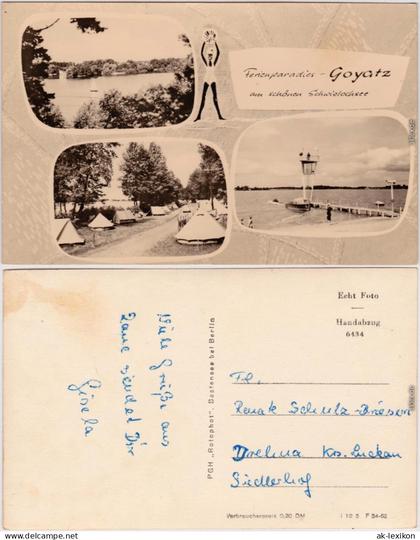 Ferienparadies - Goyatz
am schönen Schwielochsee
Viele Grüße aus
sendet Dir
Gisela
PGH „Rotophot“, Bestensee bei Berlin
Echt Foto
Handabzug
6434
Frl.
Renate Schulz-
Drehna Krs. Luckau
Siedlerhof
Verbraucherpreis 0,20 DM
F 54-62
www.ak-lexikon.de